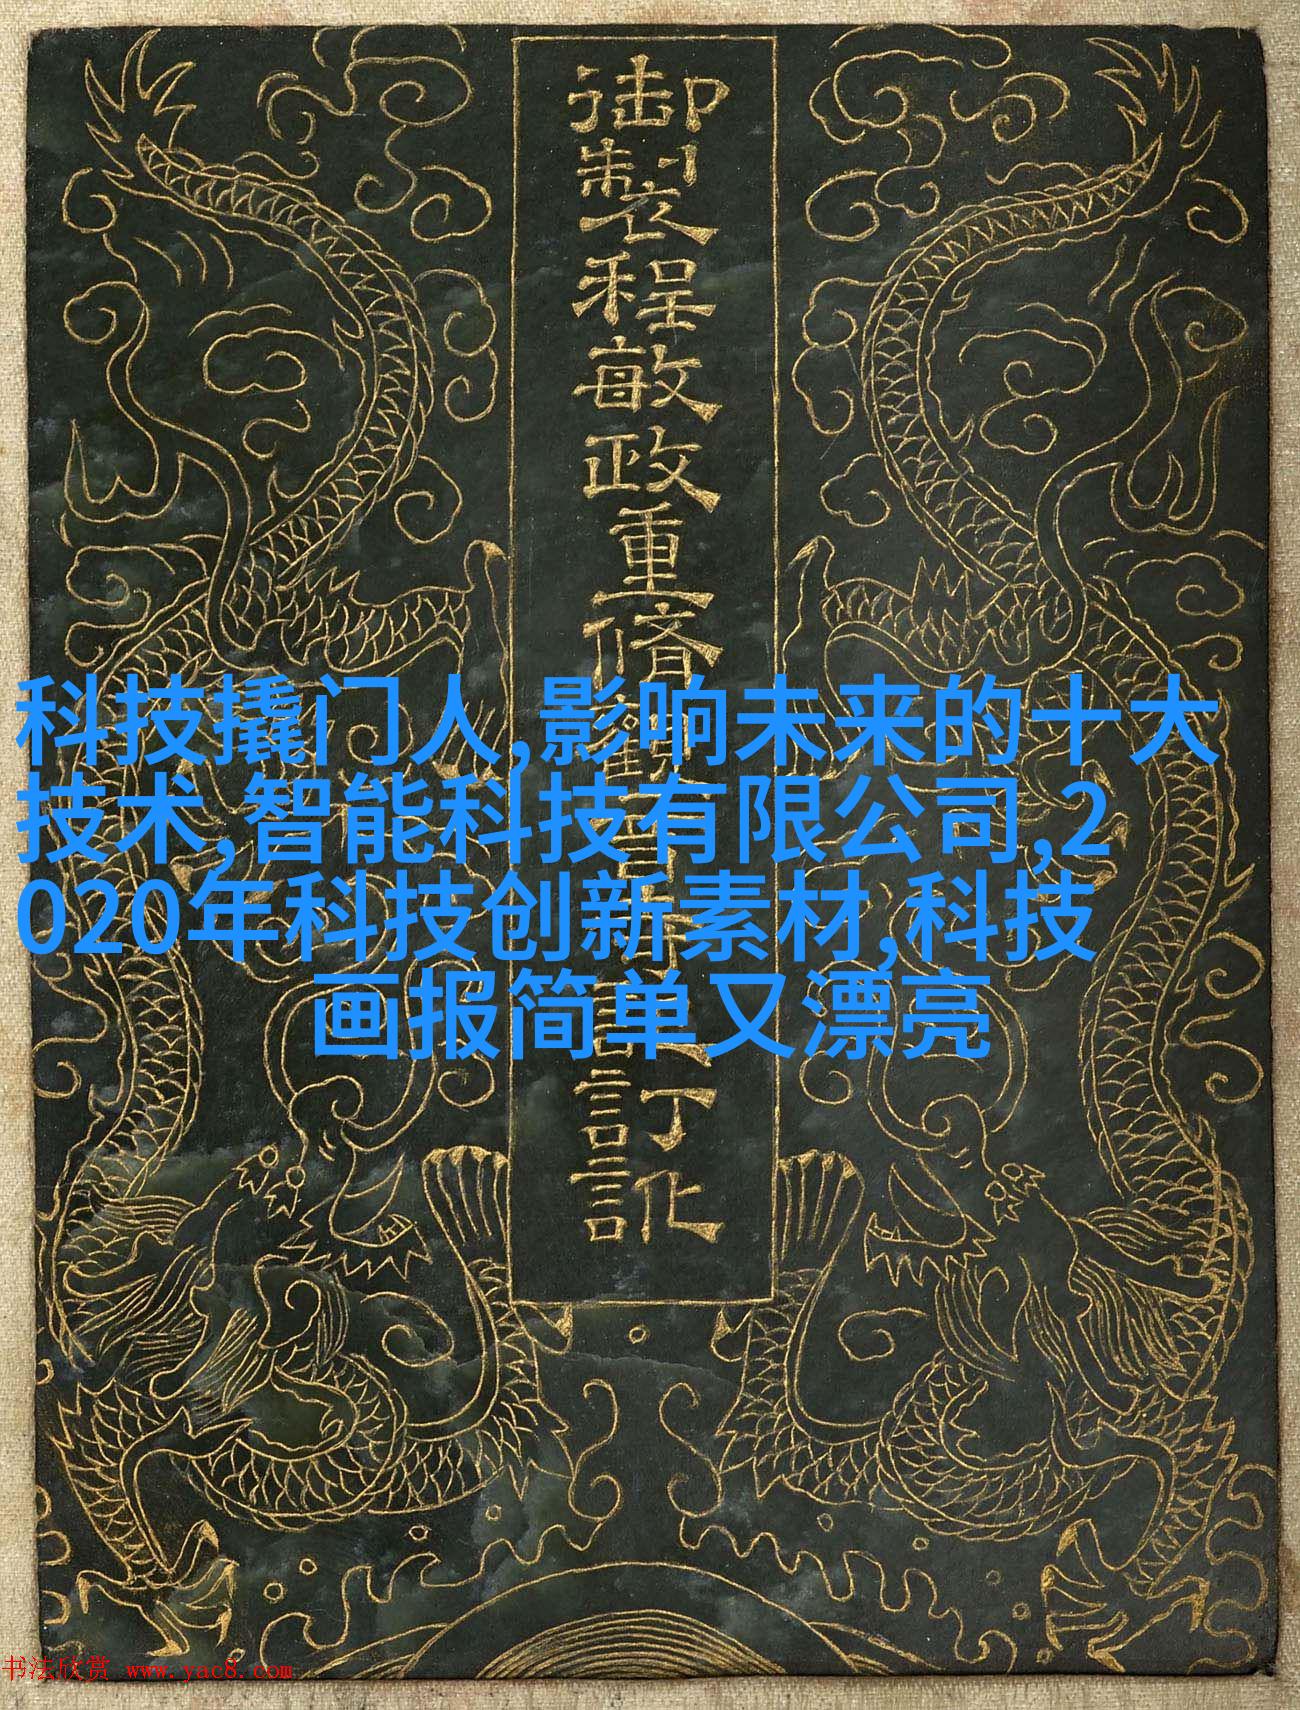 御製程敏政重脩
訂訛
科技撬门人,影响未来的十大
技术,智能科技有限公司,2
020年科技创新素材,科技
画报简单又漂亮
书法欣赏 www.yac8.com